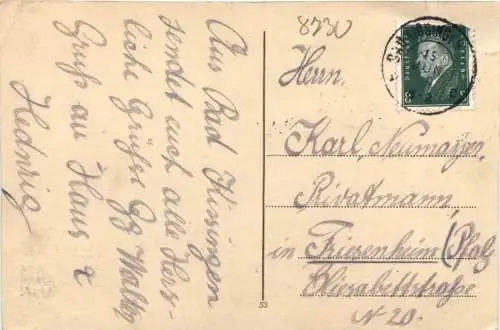 8730
Aus Bad Kissingen
sendet euch alle Herz-
liche Grüße
Gruß an Haus
Herrn,
Karl, Neumayer,
Privatmann,
in Friesenheim (Pfalz
Elisabettstraße
N 20.
53